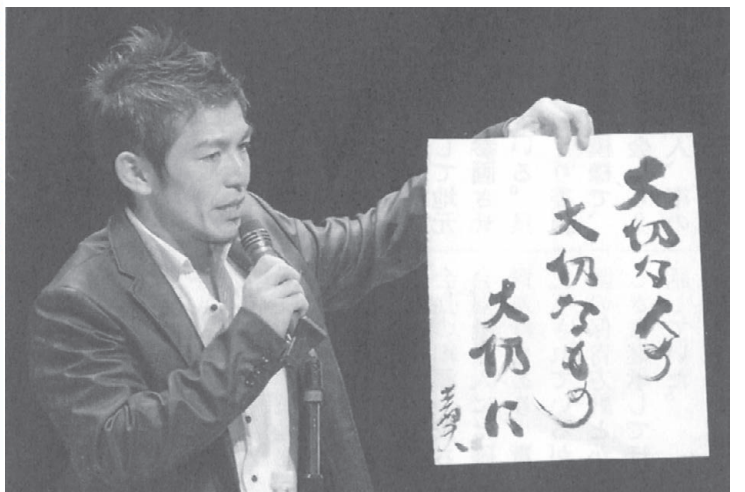 大切な人の
大切なもの
大切に